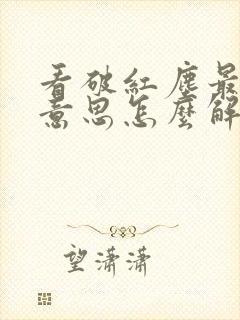 看破紅塵最
意思怎麼解
望瀟瀟